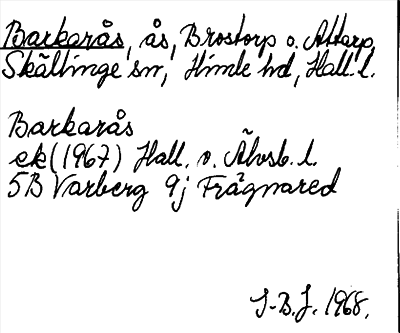 Barkarås, ås, Brostorp o. Attarp,
Skällinge sn, Himle hd, Hall. l.
Barkarås
ek (1967) Hall. o. Älvsb. l.
5B Varberg 9j Frägnared
S-B.J. 1968.